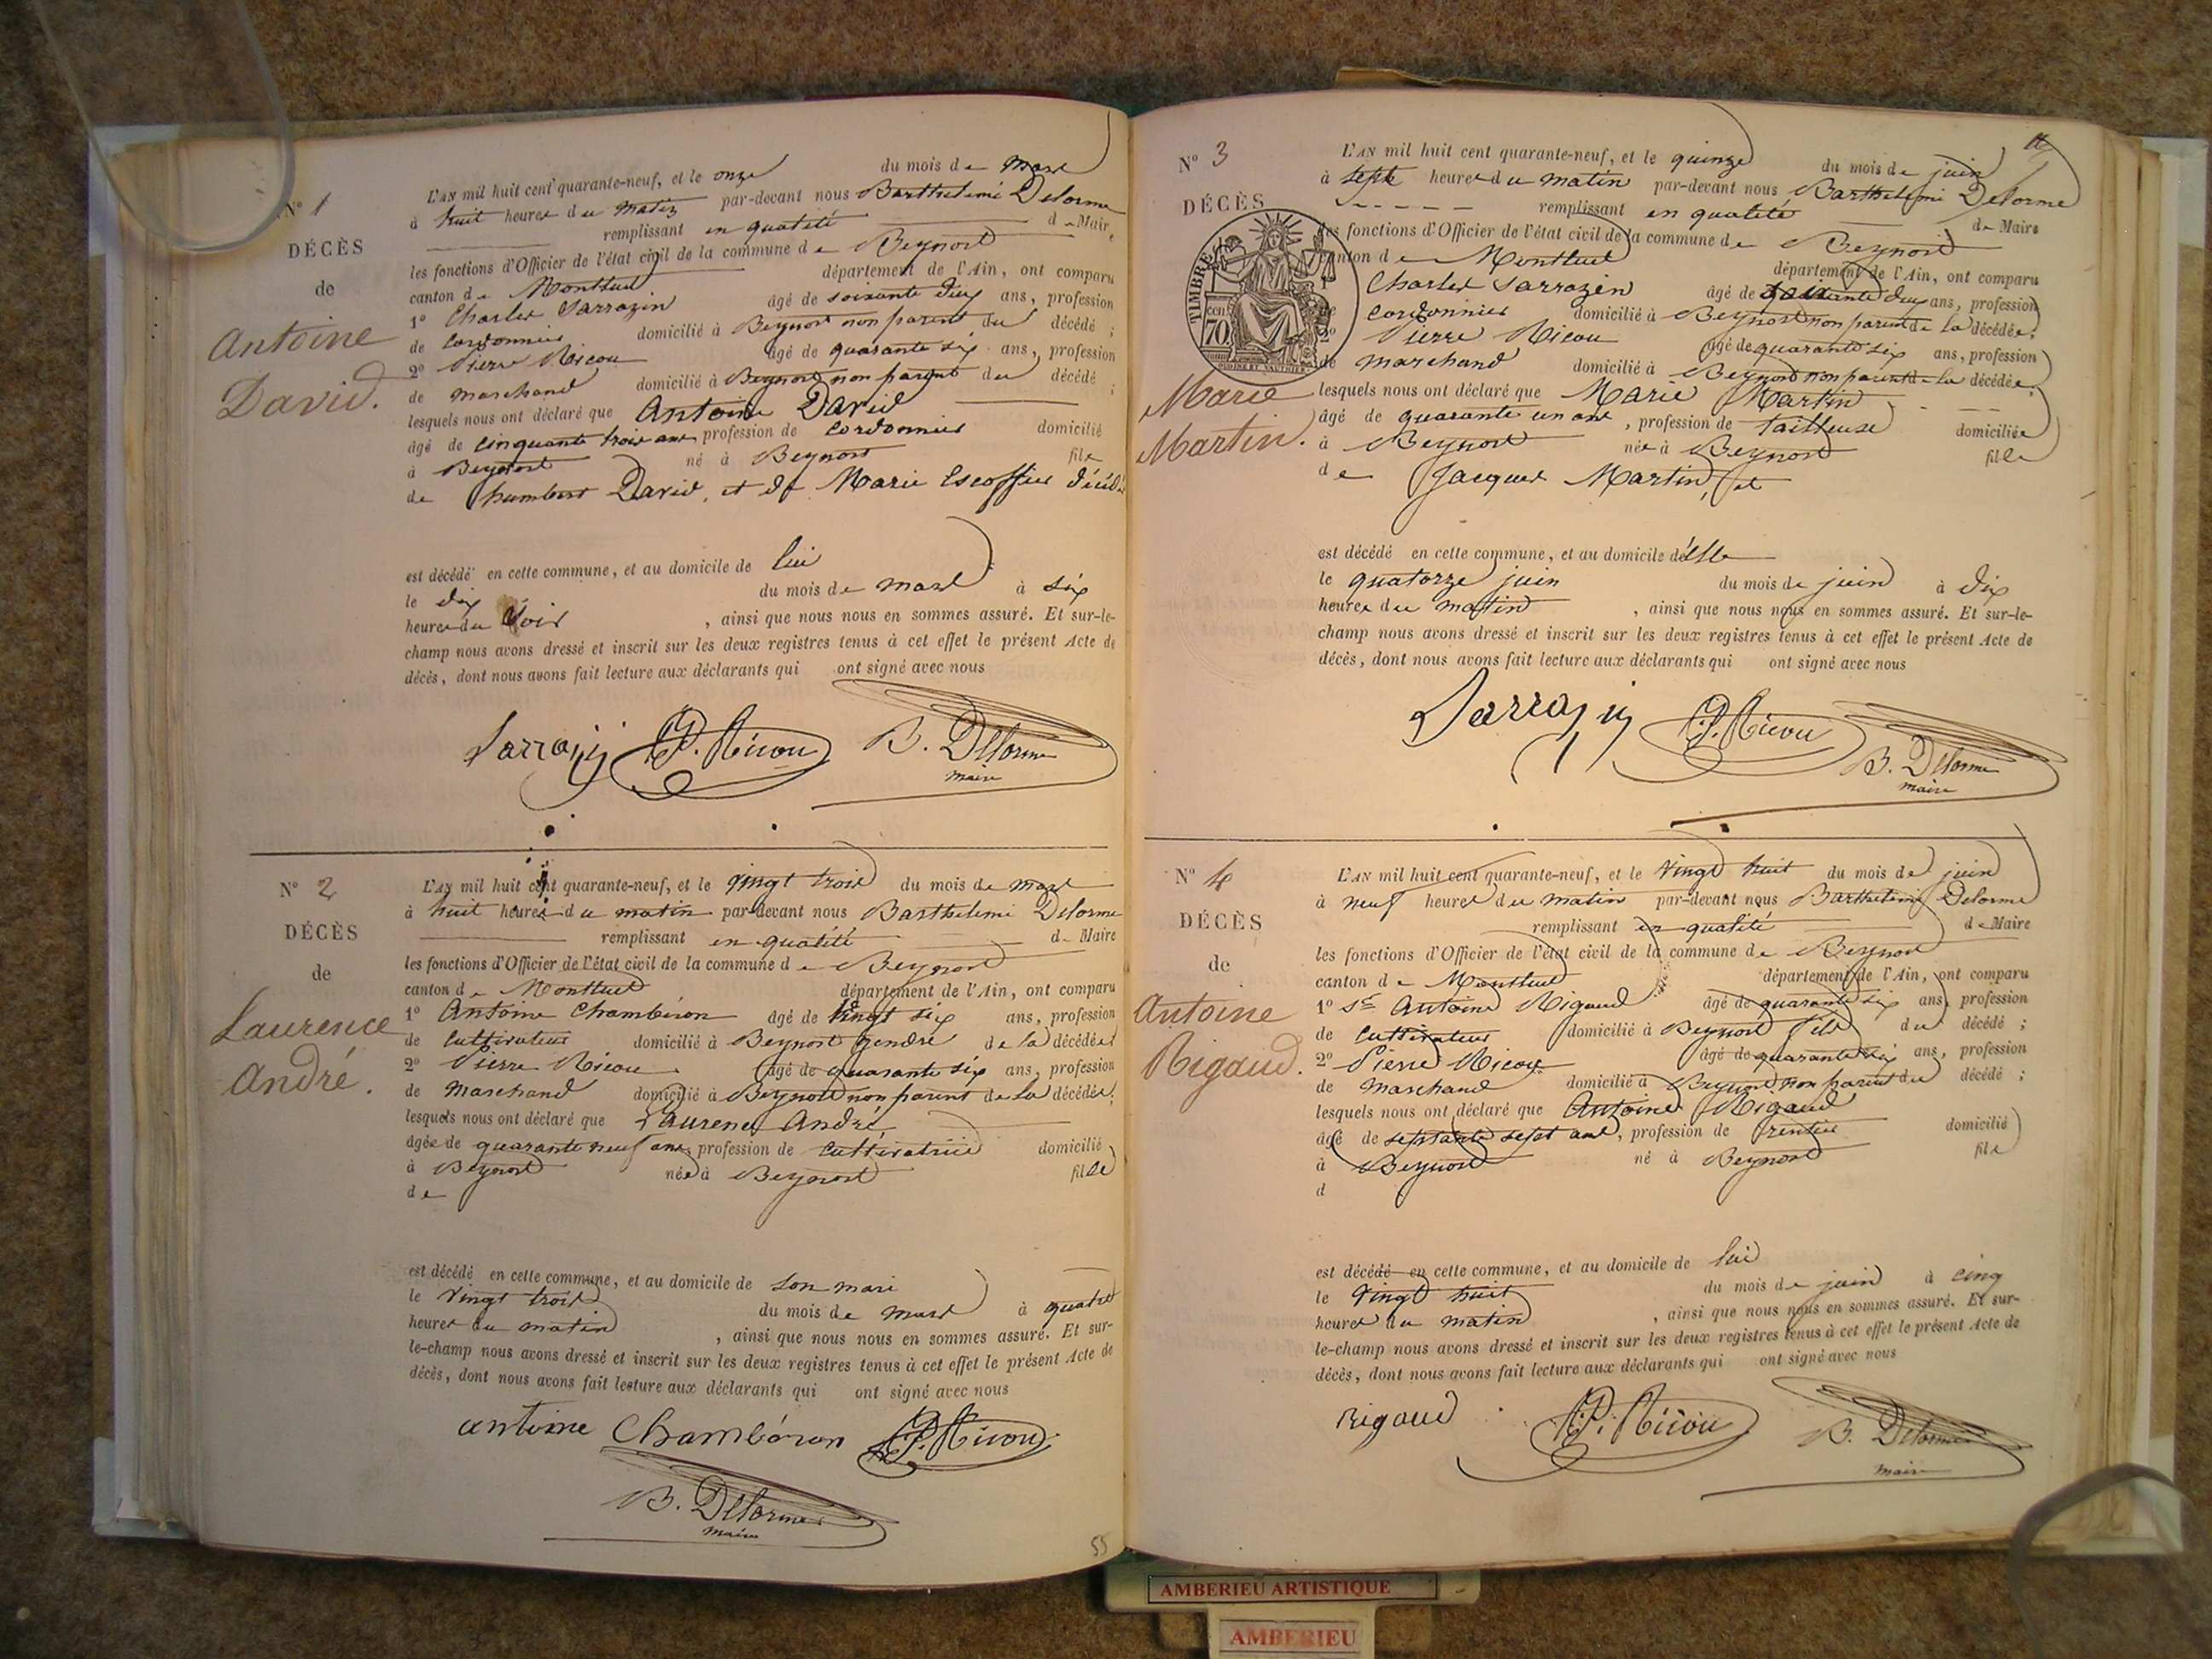 N° 1
DÉCÈS
de
Antoine
David.
L'AN mil huit cent quarante-neuf, et le onze du mois de mars
à huit heures du matin par-devant nous Barthelemi Delorme
remplissant en qualité de Maire
les fonctions d'Officier de l'état civil de la commune de Beynost
canton de Montluel département de l'Ain, ont comparu
1° Charles Sarrazin âgé de soixante deux ans, profession
de cordonnier domicilié à Beynost non parent du décédé ;
2° Pierre Nicou âgé de quarante six ans, profession
de marchand domicilié à Beynost non parent du décédé ;
lesquels nous ont déclaré que Antoine David
âgé de cinquante trois ans profession de cordonnier domicilié
à Beynost né à Beynost fils
de humbert David, et de Marie Escoffier décédés
est décédé en cette commune, et au domicile de lui
le dix du mois de mars à six
heures du soir , ainsi que nous nous en sommes assuré. Et sur-le-
champ nous avons dressé et inscrit sur les deux registres tenus à cet effet le présent Acte de
décès, dont nous avons fait lecture aux déclarants qui ont signé avec nous
Sarrazin P. Nicou B. Delorme
maire
N° 2
DÉCÈS
de
Laurence
André.
L'AN mil huit cent quarante-neuf, et le vingt trois du mois de mars
à huit heures du matin par-devant nous Barthelemi Delorme
remplissant en qualité de Maire
les fonctions d'Officier de l'état civil de la commune de Beynost
canton de Montluel département de l'Ain, ont comparu
1° Antoine Chambéron âgé de vingt six ans, profession
de cultivateur domicilié à Beynost gendre de la décédée
2° Pierre Nicou âgé de quarante six ans, profession
de marchand domicilié à Beynost non parent de la décédée ;
lesquels nous ont déclaré que Laurence André
âgée de quarante neuf ans profession de cultivatrice domicilié
à Beynost née à Beynost fille
de
est décédé en cette commune, et au domicile de son mari
le vingt trois du mois de mars à quatre
heures du matin , ainsi que nous nous en sommes assuré. Et sur-
le-champ nous avons dressé et inscrit sur les deux registres tenus à cet effet le présent Acte de
décès, dont nous avons fait lecture aux déclarants qui ont signé avec nous
antoine Chambéron P. Nicou
B. Delorme
maire
55
N° 3
DÉCÈS
TIMBRE
70
Marie
Martin.
L'AN mil huit cent quarante-neuf, et le quinze du mois de juin
à sept heures du matin par-devant nous Barthelemi Delorme
remplissant en qualité de Maire
les fonctions d'Officier de l'état civil de la commune de Beynost
canton de Montluel département de l'Ain, ont comparu
Charles Sarrazin âgé de soixante deux ans, profession
de cordonnier domicilié à Beynost non parent de la décédée ;
2° Pierre Nicou âgé de quarante six ans, profession
de marchand domicilié à Beynost non parent de la décédée ;
lesquels nous ont déclaré que Marie Martin
âgé de quarante un ans , profession de tailleuse domiciliée
à Beynost née à Beynost fille
de Jacques Martin, et
est décédé en cette commune, et au domicile d'elle
le quatorze juin du mois de juin à dix
heures du matin , ainsi que nous nous en sommes assuré. Et sur-le-
champ nous avons dressé et inscrit sur les deux registres tenus à cet effet le présent Acte de
décès, dont nous avons fait lecture aux déclarants qui ont signé avec nous
Sarrazin P. Nicou B. Delorme
maire
N° 4
DÉCÈS
de
Antoine
Rigaud.
L'AN mil huit cent quarante-neuf, et le vingt huit du mois de juin
à neuf heures du matin par-devant nous Barthelemi Delorme
remplissant en qualité de Maire
les fonctions d'Officier de l'état civil de la commune de Beynost
canton de Montluel département de l'Ain, ont comparu
1° Sr Antoine Rigaud âgé de quarante six ans, profession
de cultivateur domicilié à Beynost fils du décédé ;
2° Pierre Nicou âgé de quarante six ans, profession
de marchand domicilié à Beynost non parent du décédé ;
lesquels nous ont déclaré que Antoine Rigaud
âgé de septante sept ans, profession de rentier domicilié
à Beynost né à Beynost fils
d
est décédé en cette commune, et au domicile de lui
le vingt huit du mois de juin à cinq
heures du matin , ainsi que nous nous en sommes assuré. Et sur-
le-champ nous avons dressé et inscrit sur les deux registres tenus à cet effet le présent Acte de
décès, dont nous avons fait lecture aux déclarants qui ont signé avec nous
Rigaud P. Nicou B. Delorme
maire
AMBERIEU ARTISTIQUE
AMBERIEU